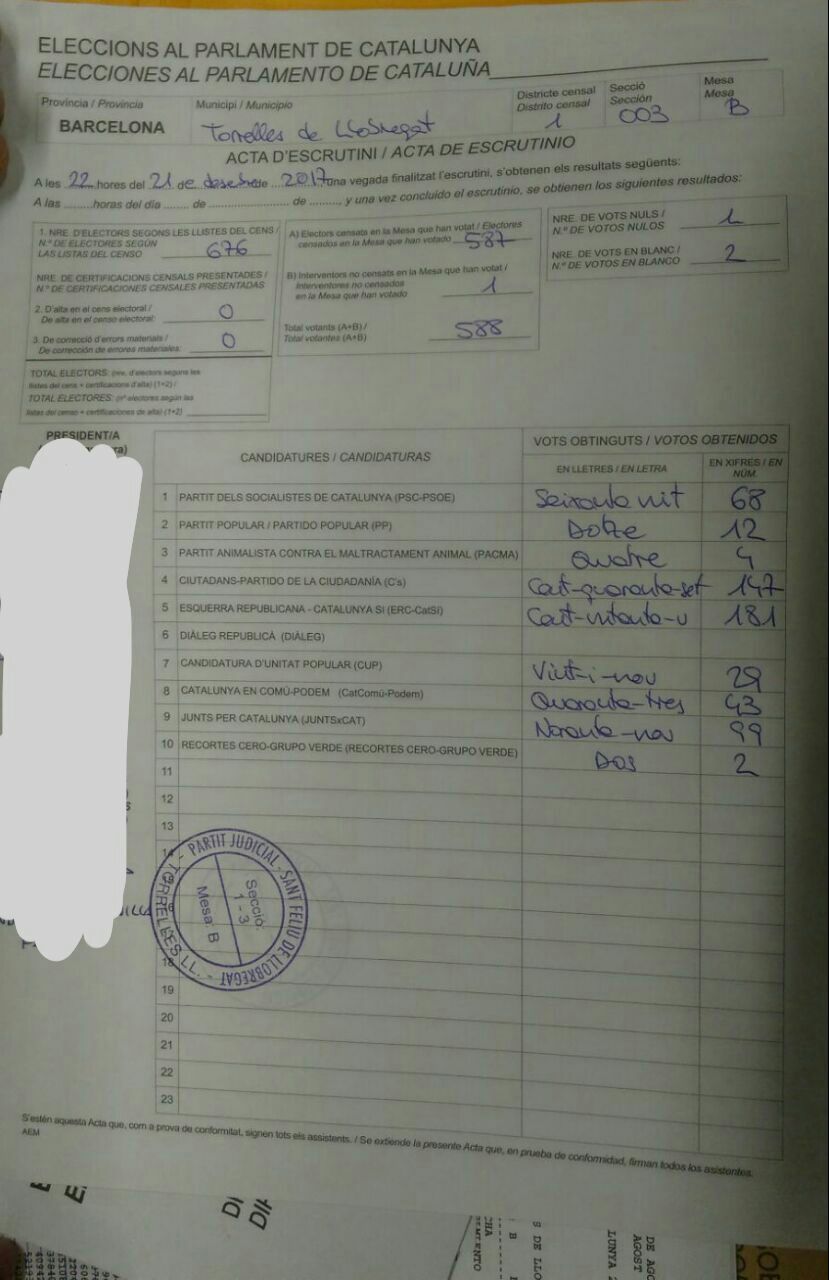 ELECCIONS AL PARLAMENT DE CATALUNYA
ELECCIONES AL PARLAMENTO DE CATALUÑA
Província / Provincia
BARCELONA
Municipi / Municipio
Torrelles de Llobregat
Districte censal
Distrito censal
1
Secció
Sección
003
Mesa
Mesa
B
ACTA D'ESCRUTINI / ACTA DE ESCRUTINIO
A les 22 hores del 21 de desembre de 2017 una vegada finalitzat l'escrutini, s'obtenen els resultats següents:
A las ........ horas del día ....... de .................... de ........., y una vez concluido el escrutinio, se obtienen los siguientes resultados:
1. NRE. D'ELECTORS SEGONS LES LLISTES DEL CENS /
N.º DE ELECTORES SEGÚN
LAS LISTAS DEL CENSO 676
NRE. DE CERTIFICACIONS CENSALS PRESENTADES /
N.º DE CERTIFICACIONES CENSALES PRESENTADAS
2. D'alta en el cens electoral /
De alta en el censo electoral: 0
3. De correcció d'errors materials /
De corrección de errores materiales: 0
TOTAL ELECTORS: (nre. d'electors segons les
llistes del cens + certificacions d'alta) (1+2) /
TOTAL ELECTORES: (nº electores según las
listas del censo + certificaciones de alta) (1+2)
A) Electors censats en la Mesa que han votat / Electores
censados en la Mesa que han votado 587
B) Interventors no censats en la Mesa que han votat /
Interventores no censados
en la Mesa que han votado 1
Total votants (A+B) /
Total votantes (A+B) 588
NRE. DE VOTS NULS /
N.º DE VOTOS NULOS 1
NRE. DE VOTS EN BLANC /
N.º DE VOTOS EN BLANCO 2
PRESIDENT/A
CANDIDATURES / CANDIDATURAS
VOTS OBTINGUTS / VOTOS OBTENIDOS
EN LLETRES / EN LETRA
EN XIFRES / EN
NÚM.
1 PARTIT DELS SOCIALISTES DE CATALUNYA (PSC-PSOE) Seixanta vuit 68
2 PARTIT POPULAR / PARTIDO POPULAR (PP) Dotze 12
3 PARTIT ANIMALISTA CONTRA EL MALTRACTAMENT ANIMAL (PACMA) Quatre 4
4 CIUTADANS-PARTIDO DE LA CIUDADANÍA (C's) Cent-quaranta-set 147
5 ESQUERRA REPUBLICANA - CATALUNYA SÍ (ERC-CatSí) Cent-vuitanta-u 181
6 DIÀLEG REPUBLICÀ (DIÀLEG)
7 CANDIDATURA D'UNITAT POPULAR (CUP) Vint-i-nou 29
8 CATALUNYA EN COMÚ-PODEM (CatComú-Podem) Quaranta-tres 43
9 JUNTS PER CATALUNYA (JUNTSxCAT) Noranta-nou 99
10 RECORTES CERO-GRUPO VERDE (RECORTES CERO-GRUPO VERDE) Dos 2
11
12
13
14
15
16
18
19
20
21
22
23
PARTIT JUDICIAL - SANT FELIU DE LLOBREGAT - TORRELLES LL. -
Secció:
1 - 3
Mesa: B
S'estén aquesta Acta que, com a prova de conformitat, signen tots els assistents. / Se extiende la presente Acta que, en prueba de conformidad, firman todos los asistentes.
AEM